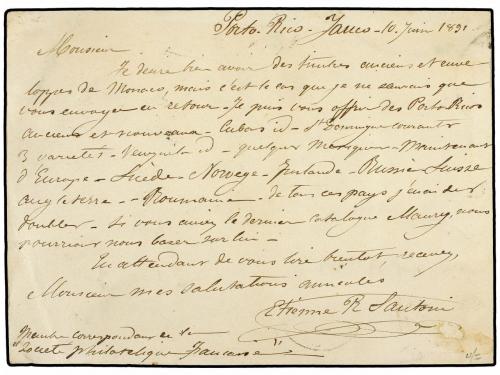 Porto-Rico. Yauco - 10 Juin 1891
Monsieur
Je désire bien avoir des timbres anciens et enve
loppes de Monaco, mais c'est le cas que je ne saurais que
vous envoyer en retour - Je puis vous offrir des Porto Rico
anciens et nouveaux - Cubas id - St Domingue courants
3 varietés - Venezuela id - quelques Mexique - Maintenant
d'Europe - Suède - Norwege - Finlande - Russie Suisse
Angleterre - Roumanie - de tous ces pays j'ai des
doubles - Si vous aviez le dernier catalogue Maury, nous
pourrions nous baser sur lui -
En attendant de vous lire bientôt recevez,
Monsieur mes salutations amicales
Etienne R Santoni
Membre correspondant de la
"Société philatélique Française"